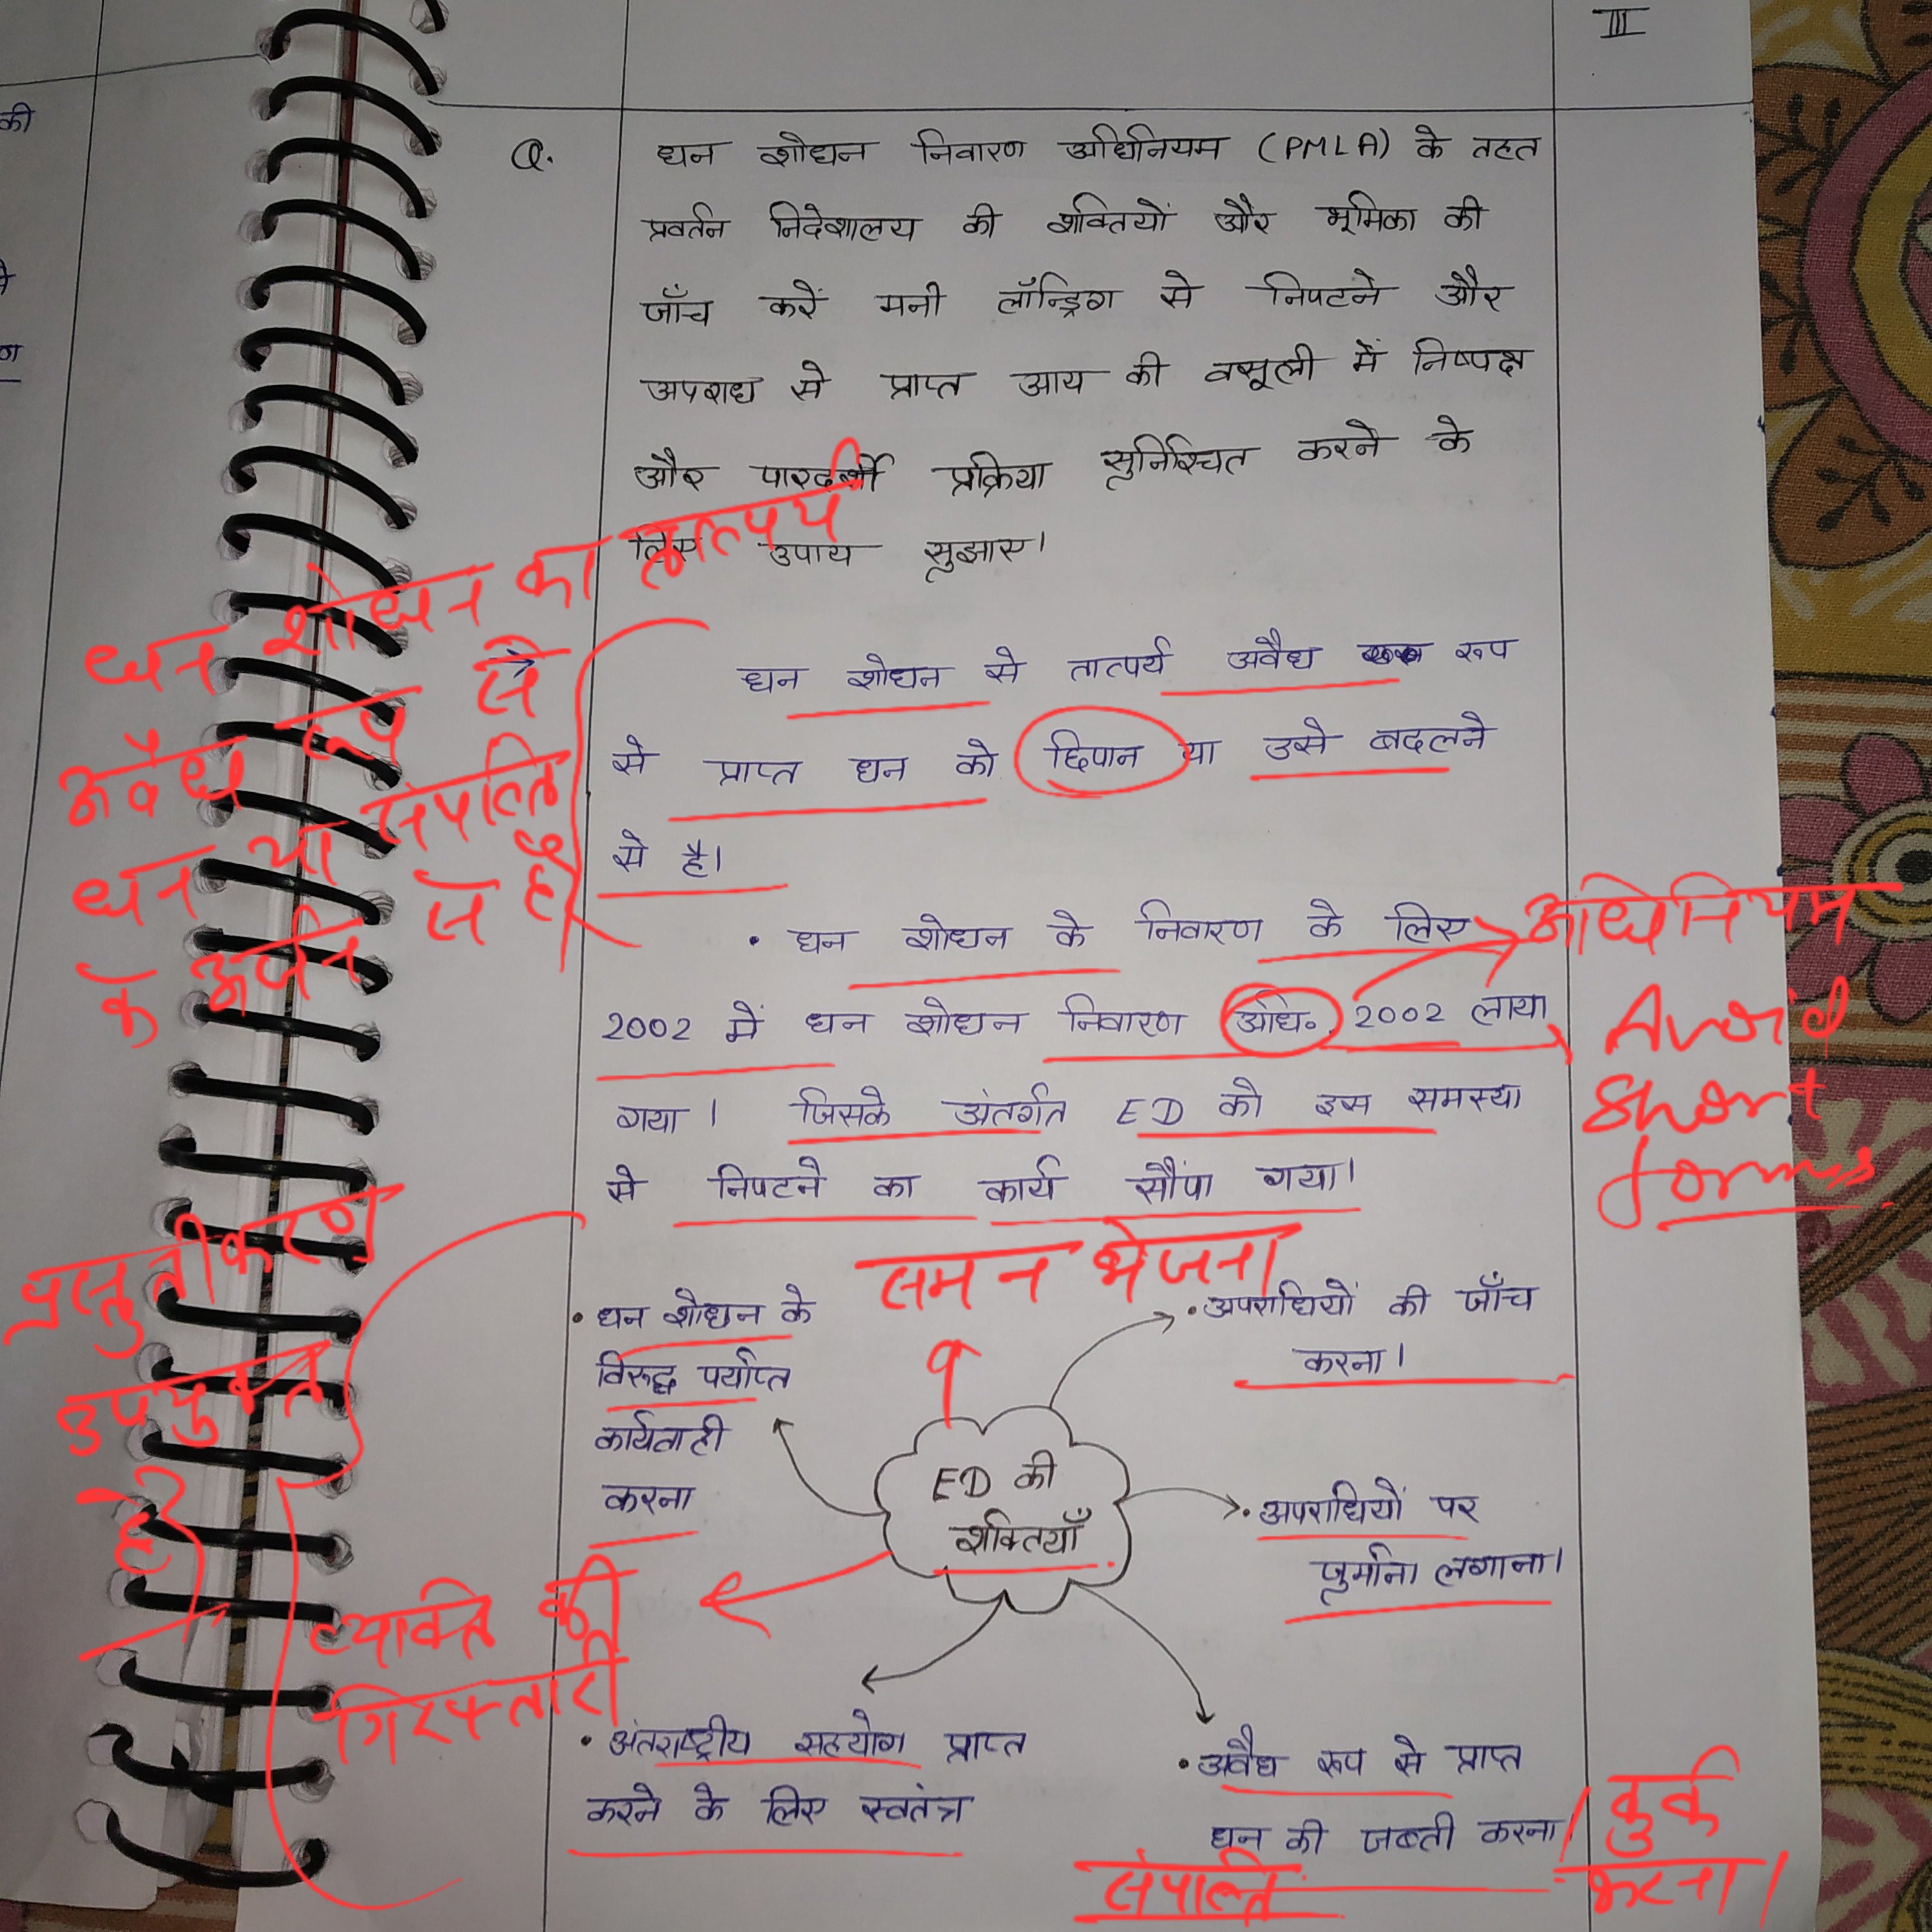 की
III
Q. धन शोधन निवारण अधिनियम (PMLA) के तहत
प्रवर्तन निदेशालय की शक्तियों और भूमिका की
जाँच करें मनी लॉन्ड्रिग से निपटने और
अपराध से प्राप्त आय की वसूली में निष्पक्ष
और पारदर्शी प्रक्रिया सुनिश्चित करने के
लिए उपाय सुझाए।
धन शोधन का तात्पर्य
अवैध रूप से
धन या संपत्ति
के अर्जन से है
धन शोधन से तात्पर्य अवैध रूप
से प्राप्त धन को छिपान या उसे बदलने
से है।
• धन शोधन के निवारण के लिए
2002 में धन शोधन निवारण अधि॰ 2002 लाया
गया । जिसके अंतर्गत ED को इस समस्या
से निपटने का कार्य सौंपा गया।
अधिनियम
Avoid
short
forms
प्रस्तुतीकरण
उपयुक्त
है
समन भेजना
• धन शोधन के
विरुद्ध पर्याप्त
कार्यवाही
करना
• अपराधियों की जाँच
करना।
ED की
शक्तियाँ
• अपराधियों पर
जुर्माना लगाना।
व्यक्ति की
गिरफ्तारी
• अंतराष्ट्रीय सहयोग प्राप्त
करने के लिए स्वतंत्र
• अवैध रूप से प्राप्त
धन की जब्ती करना
संपत्ति
/ कुर्क
करना।